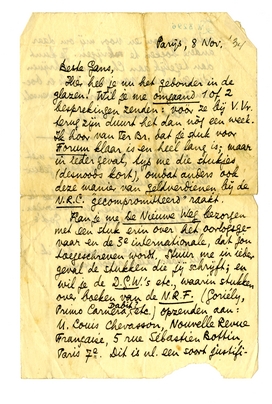 Parijs, 8 Nov. '34
Beste Gans,
Hier heb je nu het gebonden in de
glazen! Wil je me omgaand 1 of 2
besprekingen zenden; voor ze bij V.Vr.
terug zijn duurt het dan nòg een week.
Ik hoor van ter Br. dat je stuk voor
Forum klaar is en heel lang is; maar
in ieder geval, tijp me die stukjes
(desnoods kort), omdat anders ook
deze manier van geldverdienen bij de
N.R.C. gecompromitteerd raakt.
Kan je me De Nieuwe Weg bezorgen
met een stuk erin over het oorlogsge-
vaar en de 3e internationale, dat jou
toegeschreven wordt. Stuur me in ieder
geval de stukken die jij schrijft; en
wil je de D.G.W.'s etc., waarin stukken
over boeken van de N.R.F. (Goriély,
Primo Carnera, etc.) opzenden aan:
M. Louis Chevasson, Nouvelle Revue
Française, 5 rue Sébastien Bottin,
Paris 7e. Dit is nl. een soort justifi-